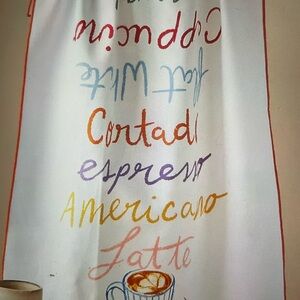 Cappuccino
Flat White
Cortado
espresso
Americano
Latte